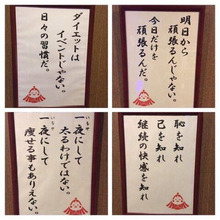 ダイエットは
イベントじゃない。
日々の習慣だ。
明日から
頑張るんじゃない。
今日だけを
頑張るんだ。
一夜にして
太るわけではない。
一夜にして
痩せる事もありえない。
恥を知れ
己を知れ
継続の快感を知れ